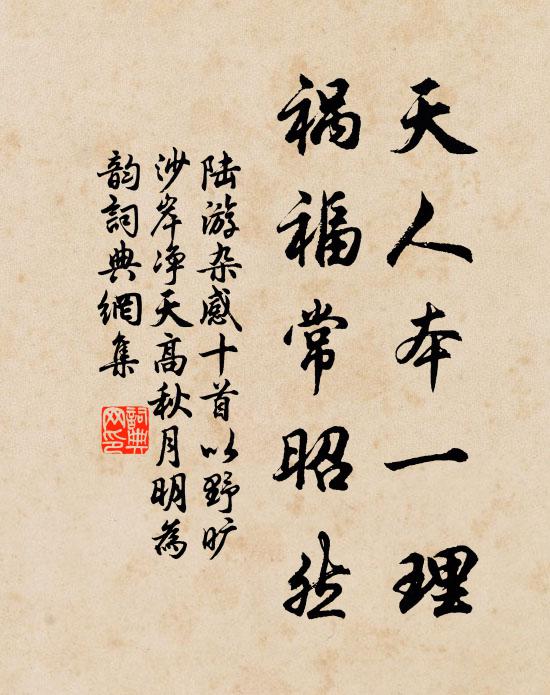 天人本一理
祸福常昭然
陆游杂感十首以野旷
沙岸净天高秋月明为
韵詞典網集
詞典
网印